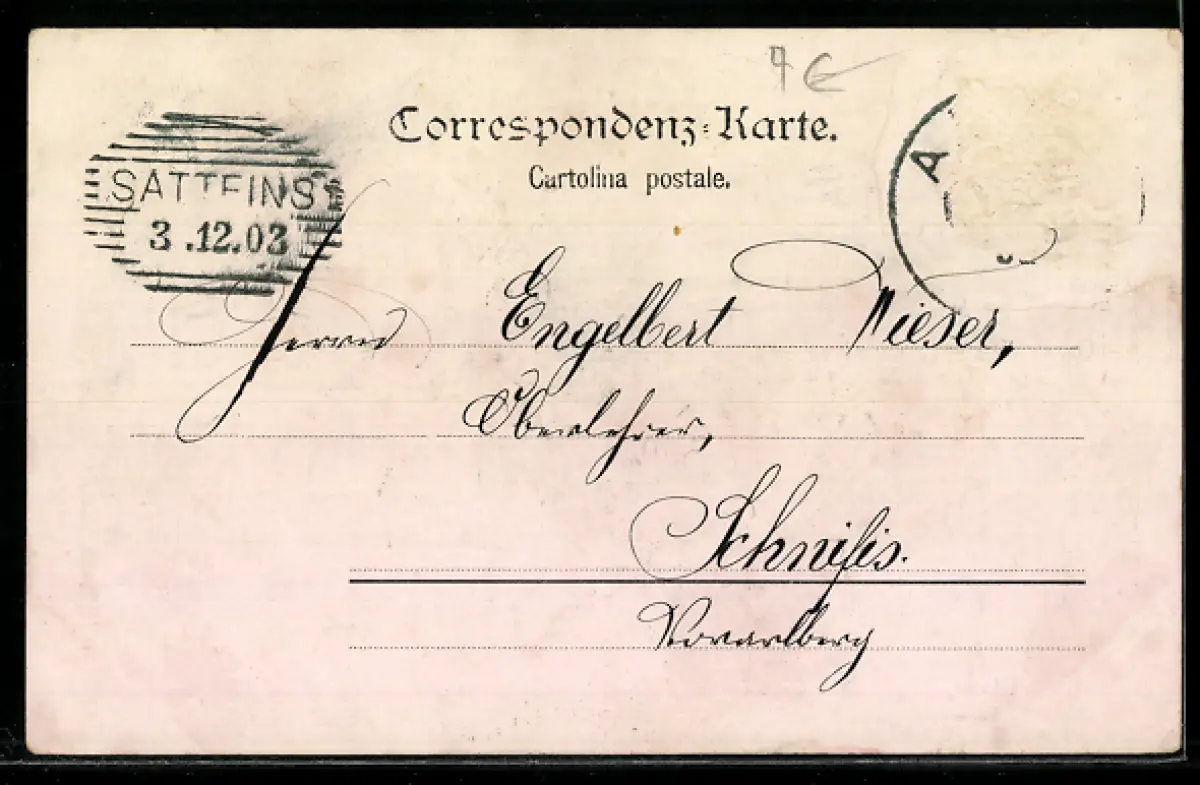 4 €
Correspondenz-Karte.
Cartolina postale.
SATTEINS
3.12.03
A
Herrn Engelbert Nieser,
Oberlehrer,
Schnifis.
Vorarlberg